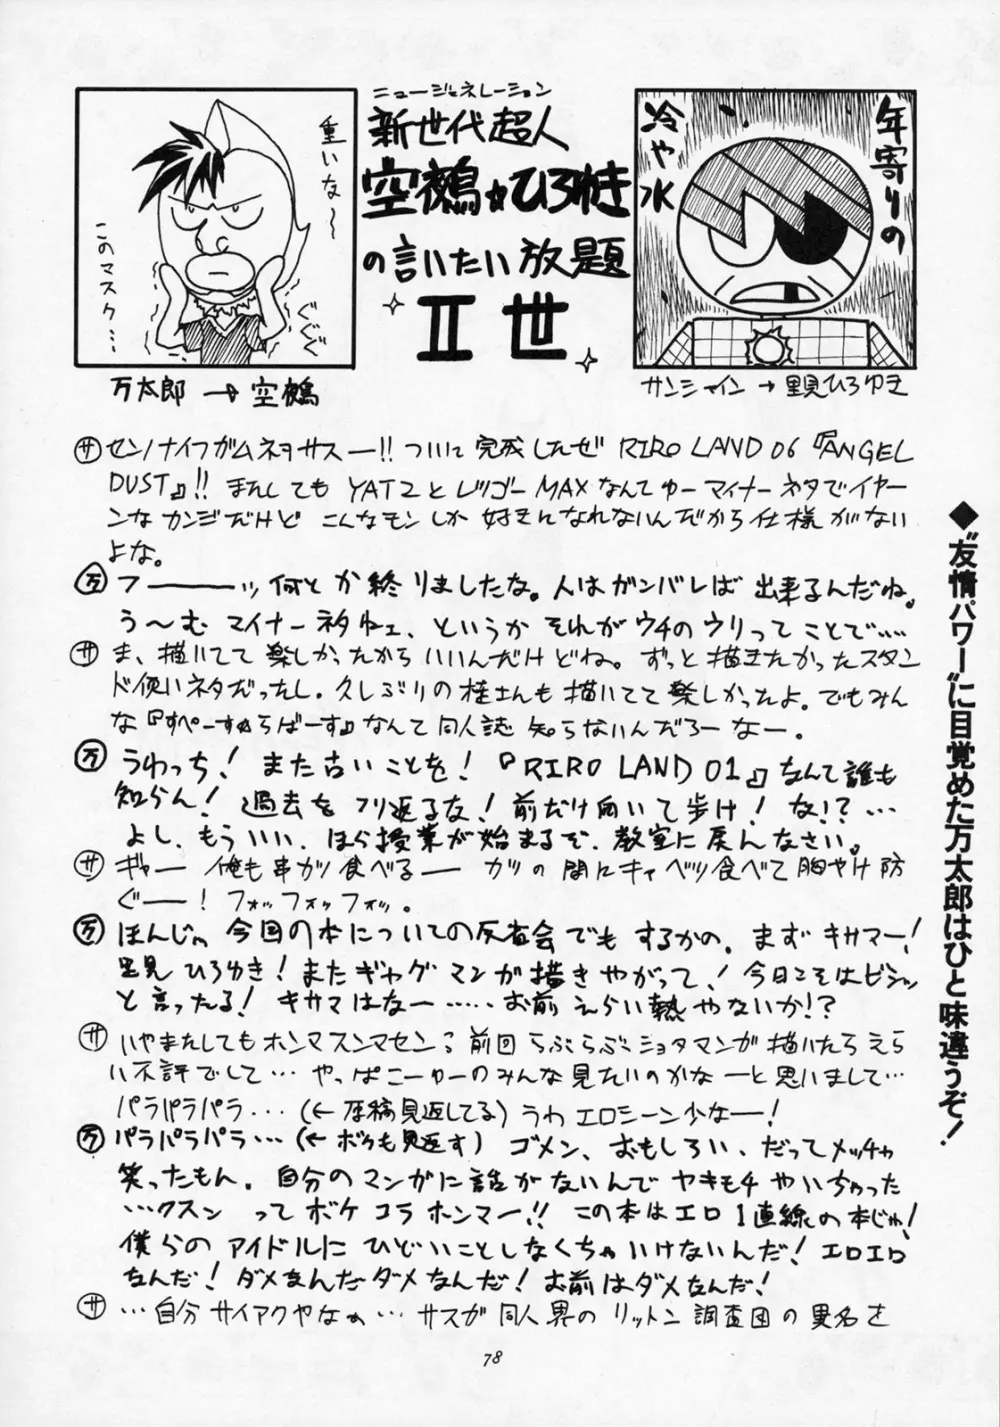 ニュージェネレーション
新世代超人
空鵺☆ひろゆき
の言いたい放題
II世
重いな〜
このマスク…
ぐぐぐ
万太郎→空鵺
年寄りの
冷や水
サンシャイン→里見ひろゆき
◆“友情パワー”に目覚めた万太郎はひと味違うぞ!
サ センノナイフガムネヲサスー!!ついに完成したぜ RIRO LAND 06『ANGEL
DUST』!!またしてもYAT2とレツゴーMAXなんてゆーマイナーネタでイヤー
ンなカンジだけど こんなモンしか好きになれないんだから仕様がない
よな。
万 フーーーッ何とか終りましたな。人はガンバレば出来るんだね。
う〜む マイナーネタねェ、というか それがウチのウリってことで……
サ ま、描いてて楽しかったからいいんだけどね。ずっと描きたかったスタン
ド使いネタだったし。久しぶりの桂さんも描いてて楽しかったよ。でもみん
な『すぺーすゅらばーす』なんて同人誌 知らないんだろーなー。
万 うわっち!また古いことを!『RIRO LAND 01』なんて誰も
知らん!過去をフリ返るな!前だけ向いて歩け!な!?…
よし、もういい、ほら授業が始まるぞ、教室に戻んなさい。
サ ギャー 俺も串カツ食べるー カツの間にキャベツ食べて胸やけ防
ぐー!フォッフォッフォッ。
万 ほんじゃ今回の本についての反省会でもするかの。まずキサマー!
里見ひろゆき!またギャグマンガ描きやがって!今日こそはビシッ
と言ったる!キサマはなー……お前えらい熱やないか!?
サ いやまたしてもホンマスンマセン。前回らぶらぶショタマンガ描いたらえら
い不評でして…やっぱこーゆーのみんな見たいのかなーと思いまして…
パラパラパラ…(←原稿見返してる)うわエロシーン少なー!
万 パラパラパラ…(←ボクも見返す)ゴメン、おもしろい、だってメッチャ
笑ったもん。自分のマンガに話がないんでヤキモチやいちゃった
…クスン ってボケコラホンマー!!この本はエロ1直線の本じゃ!
僕らのアイドルにひどいことしなくちゃいけないんだ!エロエロ
なんだ!ダメなんだダメなんだ!お前はダメなんだ!
サ …自分サイアクやなぁ…サスガ同人界のリットン調査団の異名を
78